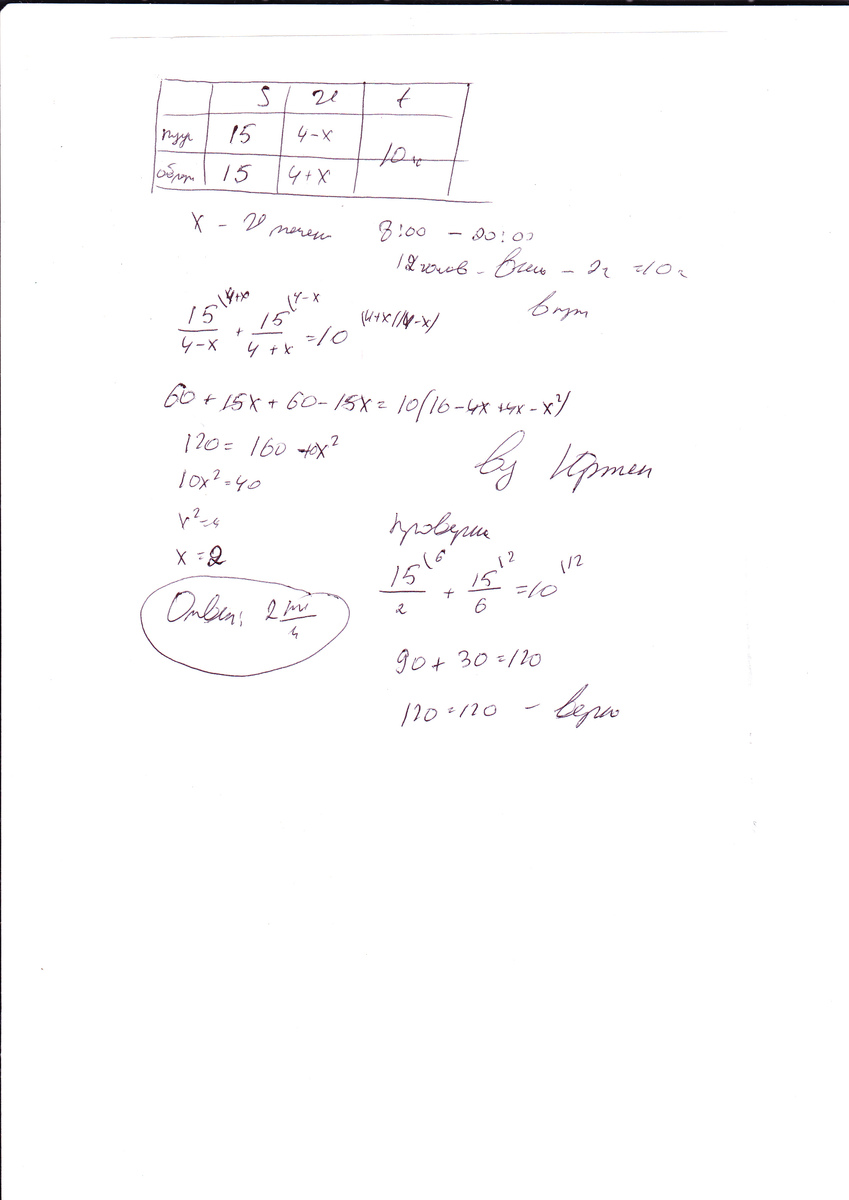 S v t
туда 15 4-x
обрат 15 4+x
10 ч
x - v течен 8:00 - 20:00
12 часов - - 2ч =10ч
в пути
15/(4-x) \4+x + 15/(4+x) \4-x =10 \(4+x)(4-x)
60+15x+60-15x=10(16-4x+4x-x²)
120=160-10x²
10x²=40
x²=4
x=2
Ответ: 2 км/ч
by Юртен
Проверка
15/2 \6 + 15/6 \2 =10 \12
90+30=120
120=120 - верно